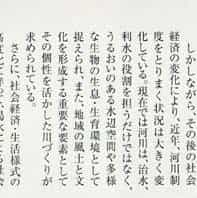 しかしながら、その後の社会
経済の変化により、近年、河川制
度をとりまく状況は大きく変
化している。現在では河川は、治水、
利水の役割を担うだけではなく、
うるおいのある水辺空間や多様
な生物の生息・生育環境として
捉えられ、また、地域の風土と文
化を形成する重要な要素として
その個性を活かした川づくりが
求められている。
さらに、社会経済、生活様式の